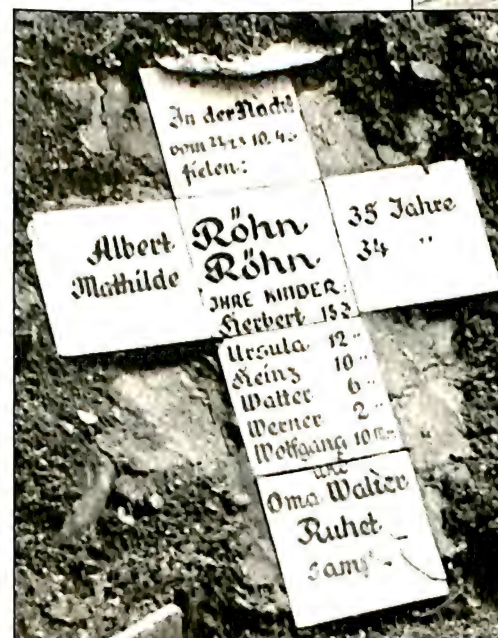 In der Nacht
vom 22/23 10. 43
fielen:
Albert Röhn 35 Jahre
Mathilde Röhn 34 "
IHRE KINDER:
Herbert 15 J
Ursula 12 "
Heinz 10 "
Walter 6 "
Werner 2 "
Wolfgang 10
und
Oma Walter
Ruhet
sanft